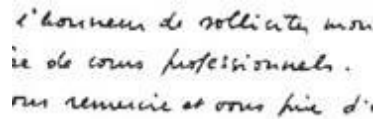 l'honneur de solliciter mon
re de cours professionnels.
ous remercie et vous prie d'a